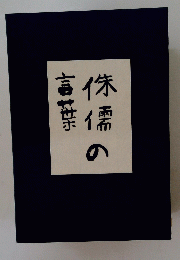 侏儒の
言葉